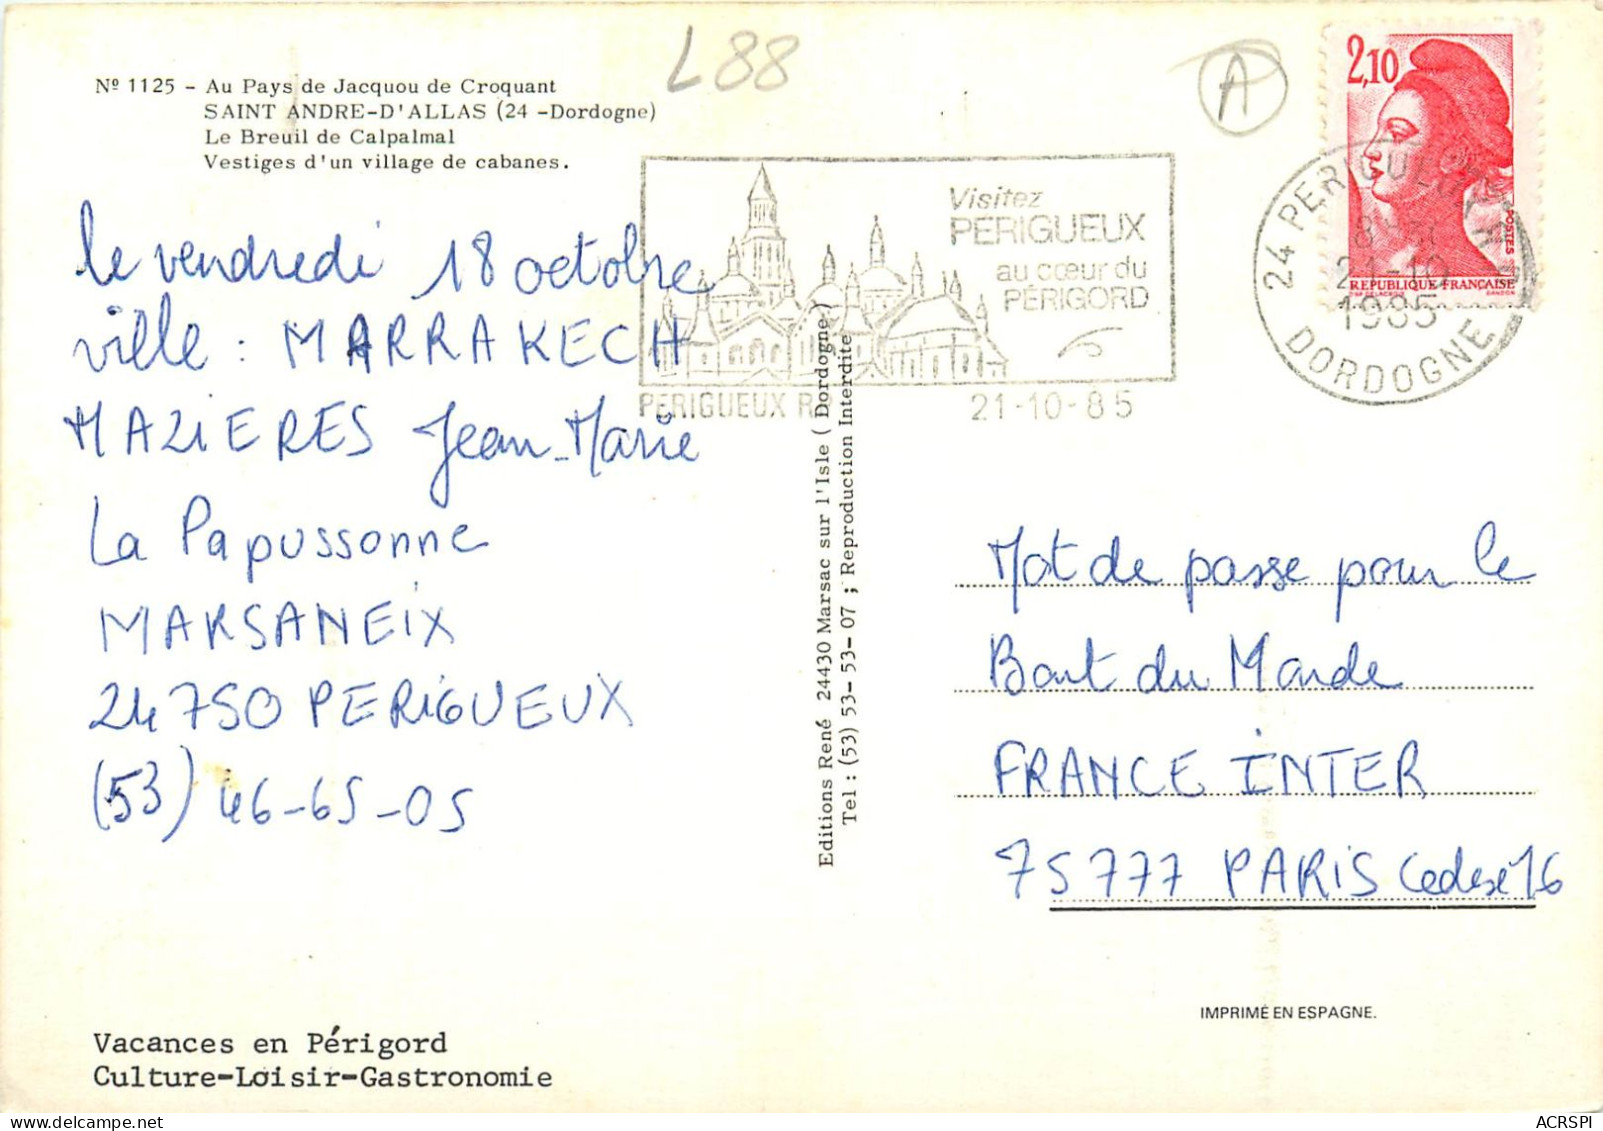 L88
A
Nº 1125 - Au Pays de Jacquou de Croquant
SAINT ANDRE-D'ALLAS (24 -Dordogne)
Le Breuil de Calpalmal
Vestiges d'un village de cabanes.
2,10
POSTES
REPUBLIQUE FRANÇAISE
24 PERIGUEUX
21-10
1985
DORDOGNE
Visitez
PERIGUEUX
au cœur du
PÉRIGORD
PERIGUEUX RP
21-10-85
le vendredi 18 octobre
ville : MARRAKECH
MAZIERES Jean-Marie
La Papussonne
MARSANEIX
24750 PERIGUEUX
(53) 46-65-05
Editions René 24430 Marsac sur l'Isle ( Dordogne )
Tel : (53) 53- 53- 07 ; Reproduction Interdite
Mot de passe pour le
Bout du Monde
FRANCE INTER
75777 PARIS Cedex 16
IMPRIMÉ EN ESPAGNE.
Vacances en Périgord
Culture-Loisir-Gastronomie
ACRSPI